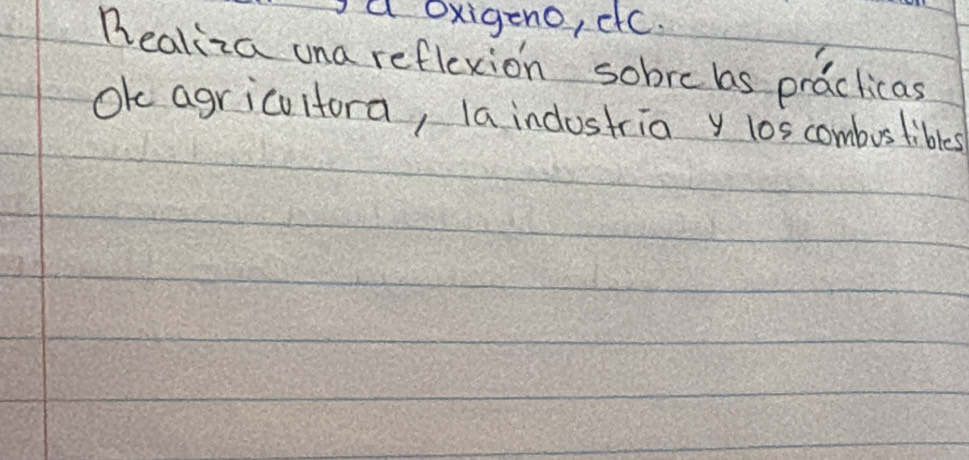 a oxigeno, etc.
Realiza una reflexión sobre las prácticas
de agricultora, la industria y los combustibles